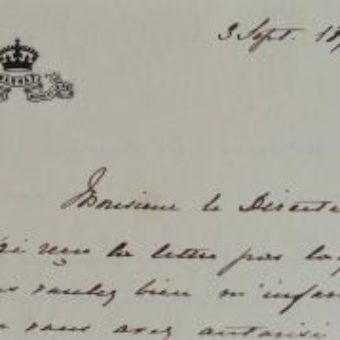 3 Sept. 18
Monsieur le Directe
ai reçu la lettre par la
vous voulez bien m'infor
vous avez autorisé